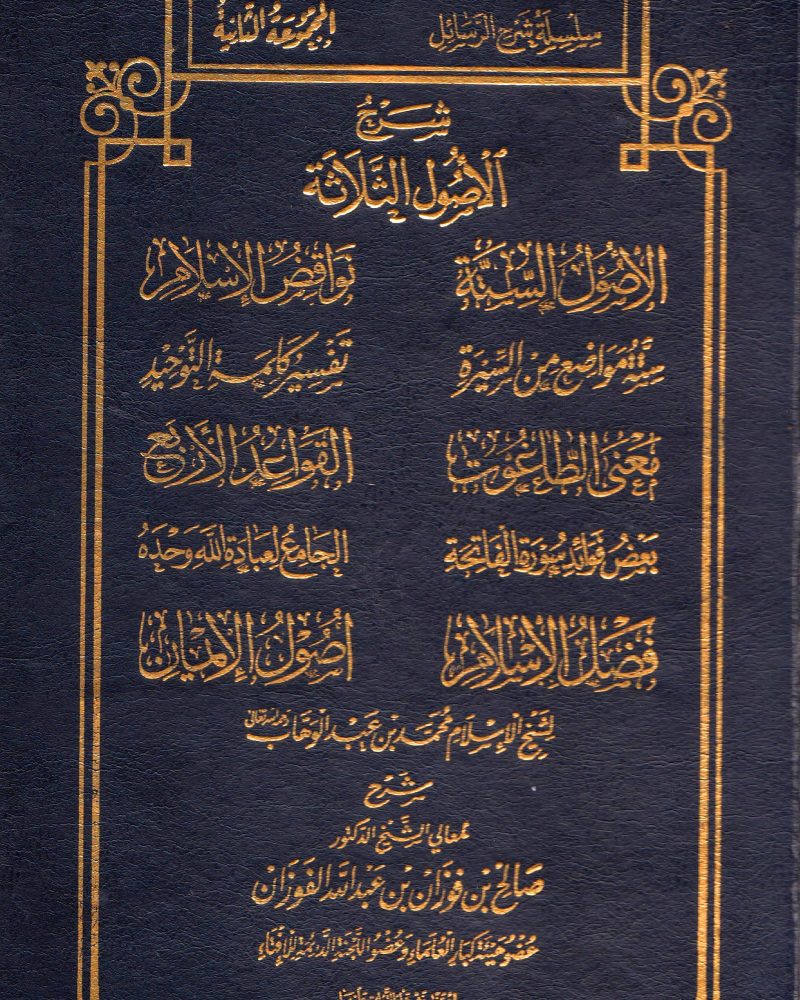 سلسلة شرح الرسائل المجموعة الثانية
شرح
الأصول الثلاثة
الأصول الستة نواقض الإسلام
ستة مواضع من السيرة تفسير كلمة التوحيد
معنى الطاغوت القواعد الأربع
بعض فوائد سورة الفاتحة الجامع لعبادة الله وحده
فضل الإسلام أصول الإيمان
لشيخ الإسلام محمد بن عبد الوهاب رحمه الله تعالى
شرح
لمعالي الشيخ الدكتور
صالح بن فوزان بن عبد الله الفوزان
عضو هيئة كبار العلماء وعضو اللجنة الدائمة للإفتاء